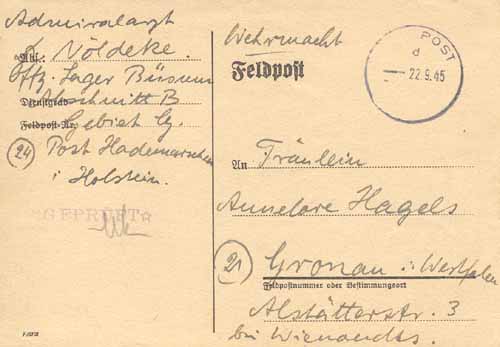 Admiralarzt
Abs.: Nöldeke.
Offz. Lager Büsum
Dienstgrad Abschnitt B
Feldpost-Nr. Gebiet G.
(24) Post Hademarschen
i. Holstein.
GEPRÜFT
Wehrmacht
Feldpost
POST
d
22.9.45
An Fräulein
Annelore Hagels
(21) Gronau i. Westfalen
Feldpostnummer oder Bestimmungsort
Alstätterstr. 3
bei Wienandts.